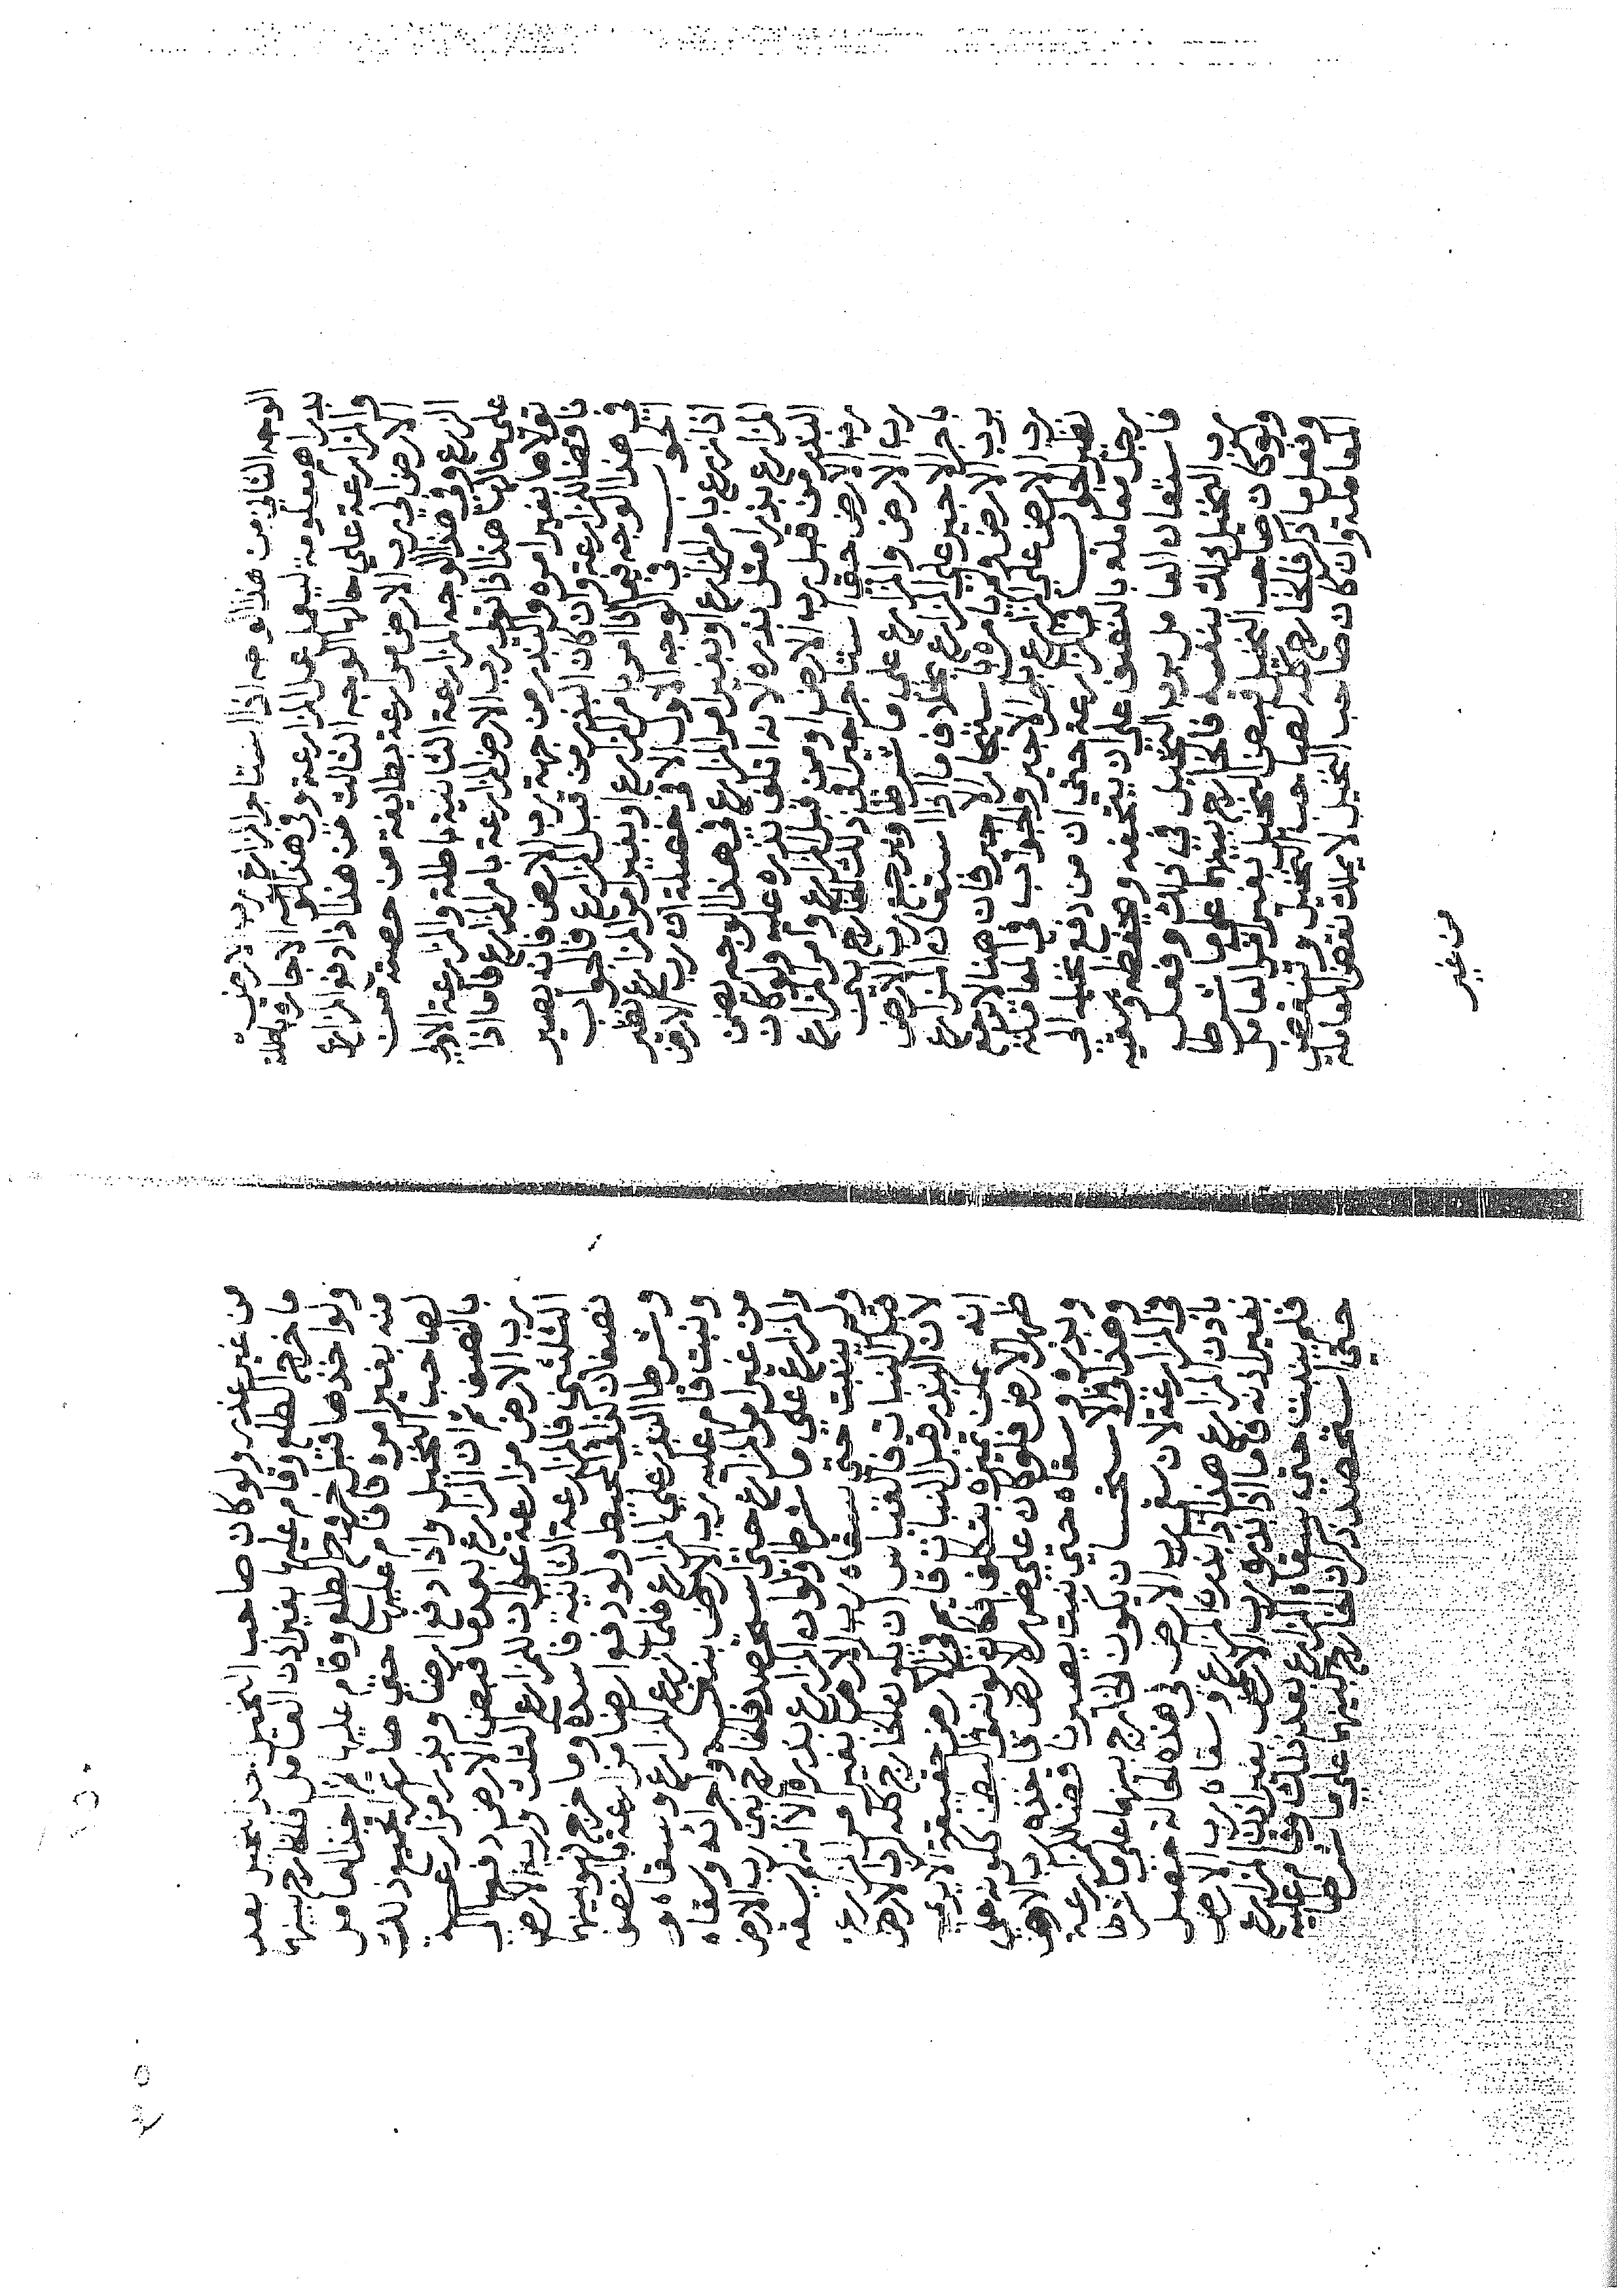 الوجه الثاني من هذا الوجه اذا استاجر المزارع رب الارض
بدراهم معلومة ليعمل عمل المزارعة وفي هذا الوجه الاجارة باطلة
والمزارعة علي حالها الوجه الثالث من هذا اذا دفع المزارع
الارض الي رب الارض مزارعة بطايفة من حصته من
الزرع وفي هذا الوجه المزارعة الثانية باطلة والمزارعة الاولي
علي حالها هذا اذا تولي رب الارض المزارعة بامر المزارع فاما اذا
تولاها بغير امره والبذر من جهة رب الارض فانه يصير
ناقضا للمزارعة وان كان البذر من قبل المزارع فالجواب
في هذا الوجه فيما اذا امر بامر المزارع او بغير امر المزارع نظير
الجواب في الوجه الاول الا في خصلة ان رب الارض
اذا زرع بامر المزارع او بغير امر المزارع في هذا الوجه يضمن
للمزارع بذرا مثل بذره لانه اتلف بذره عليه ولو كان
البذر من قبل رب الارض او من قبل المزارع وامر المزارع
رب الارض حتي استاجر اجيرا في ذلك فالخارج بين
رب الارض والمزارع علي ما شرطا ويرجع رب الارض
باجر الاجير علي المزارع بخلاف ما اذا استعان المزارع
برب الارض ولم يامره باستيجار الاجير فان هنا لا يرجع
رب الارض علي المزارع باجر الاجير والجواب في المعاملة
نظير الجواب في المزارعة حتي ان من دفع نخيله الي
رجل معاملة بالنصف علي ان يلقحه ويحفظه ويسقيه
فاستعان العامل برب النخيل في ذلك وفعل
رب النخيل ذلك بنفسه فالخارج بينهما علي ما شرطا
ولو كان صاحب النخيل قبض النخيل بغير امر العامل
وفعل ما ذكر فالخارج كله لصاحب النخيل وتنتقض
المعاملة وان كان صاحب النخيل لا يملك نقض المعاملة
من غير
من غير عذر ولو كان صاحب النخيل اخذ النخيل بعد
ما خرج الطلع وقام عليها بغير اذن العامل فالخارج بينهما
ولو اخذها قبل خروج الطلع وقام عليها ثم اخذ العامل
منه بغير امره فاقام عليها حتي صار تمرا فجميع ذلك
لصاحب النخيل واذا دفع ارضا وبذرا مزارعة
بالنصف ثم ان المزارع بعد ما قبض الارض دفعها الي
رب الارض مزارعة علي ان للمزارع الثلث ولرب الارض
الثلثين فالمزارعة الثانية فاسدة وما خرج فهو بينهما
نصفان كذا في المحيط ولو دفع ارضا مزارعة بالنصف
وشرطا البذر علي المزارع فلما زرع المزارع وسقاه و
ونبت قام عليه رب الارض بنفسه واجرائه وسقاه
من غير امر المزارع حتي استحصد فالخارج بين رب الارض
والمزارع علي ما شرطا ولو ان المزارع بذره الا انه لم يسقه
ولم ينبت حتي سقاه رب الارض بغير امر المزارع
قبل النبات فالقياس ان يكون الخارج كله لرب الارض
لان البذر قبل النبات قايم في الارض حقيقة الا يري
انه يمكن تمييزه بتكلف فكان كونه في البطن ككونه علي
ظهر الارض فلو كان علي ظهر الارض فاخذه رب الارض
وبذره وسقاه حتي نبت يصير ناقضا للمزارعة
وهذا استحسان يكون الخارج بينهما علي ما شرطا
والمزارعة لان سقي رب الارض في هذه الحالة حصل
باذن المزارع هذا اذا بذره المزارع وسقاه رب الارض
بغير اذنه فاما اذا بذره رب الارض بغير اذن المزارع
فلم ينبت حتي سقاه المزارع بعد ذلك وقام عليه
حتي استحصد ذكر ان الخارج بينهما علي ما شرطا